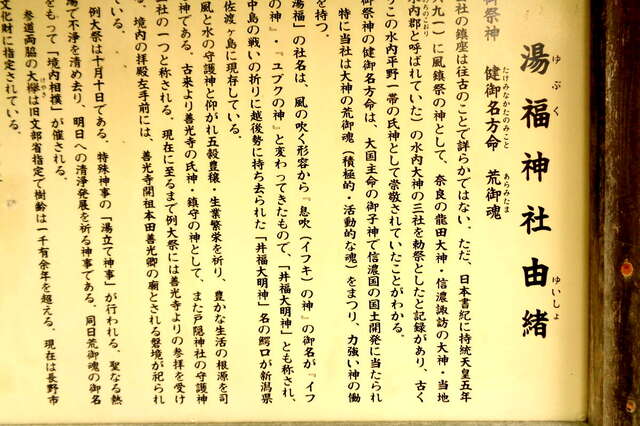 湯福神社由緒
ゆぶく
ゆいしょ
御祭神　健御名方命　荒御魂
たけみなかたのみこと
あらみたま
社の鎮座は往古のことで詳らかではない、ただ、日本書紀に持統天皇五年
六九一）に風鎮祭の神として、奈良の龍田大神・信濃諏訪の大神・当地
水内郡と呼ばれていた）の水内大神の三社を勅祭としたと記録があり、古く
みのちのこおり
りこの水内平野一帯の氏神として崇敬されていたことがわかる。
御祭神の健御名方命は、大国主命の御子神で信濃国の国土開発に当たられ
特に当社は大神の荒御魂（積極的・活動的な魂）をまつり、力強い神の働
を持つ。
湯福」の社名は、風の吹く形容から『息吹（イフキ）の神』の御名が『イフ
の神』・『ユブクの神』と変わってきたもので、「井福大明神」とも称され、
中島の戦いの祈りに越後勢に持ち去られた「井福大明神」名の鰐口が新潟県
佐渡ヶ島に現存している。
風と水の守護神と仰がれ五穀豊穣・生業繁栄を祈り、豊かな生活の根源を司
神である。古来より善光寺の氏神・鎮守の神として、また戸隠神社の守護神
社の一つと称される。現在に至るまで例大祭には善光寺よりの参拝を受け
境内の拝殿左手前には、善光寺開祖本田善光卿の廟とされる磐境が祀られ
ている。
例大祭は十月十日である。特殊神事の「湯立て神事」が行われる。聖なる熱
湯で不浄を清め去り、明日への清浄発展を祈る神事である。同日荒御魂の御名
をもって「境内相撲」が催される。
参道両脇の大欅は旧文部省指定で樹齢は一千有余年を超える。現在は長野市
けやき
文化財に指定されている。